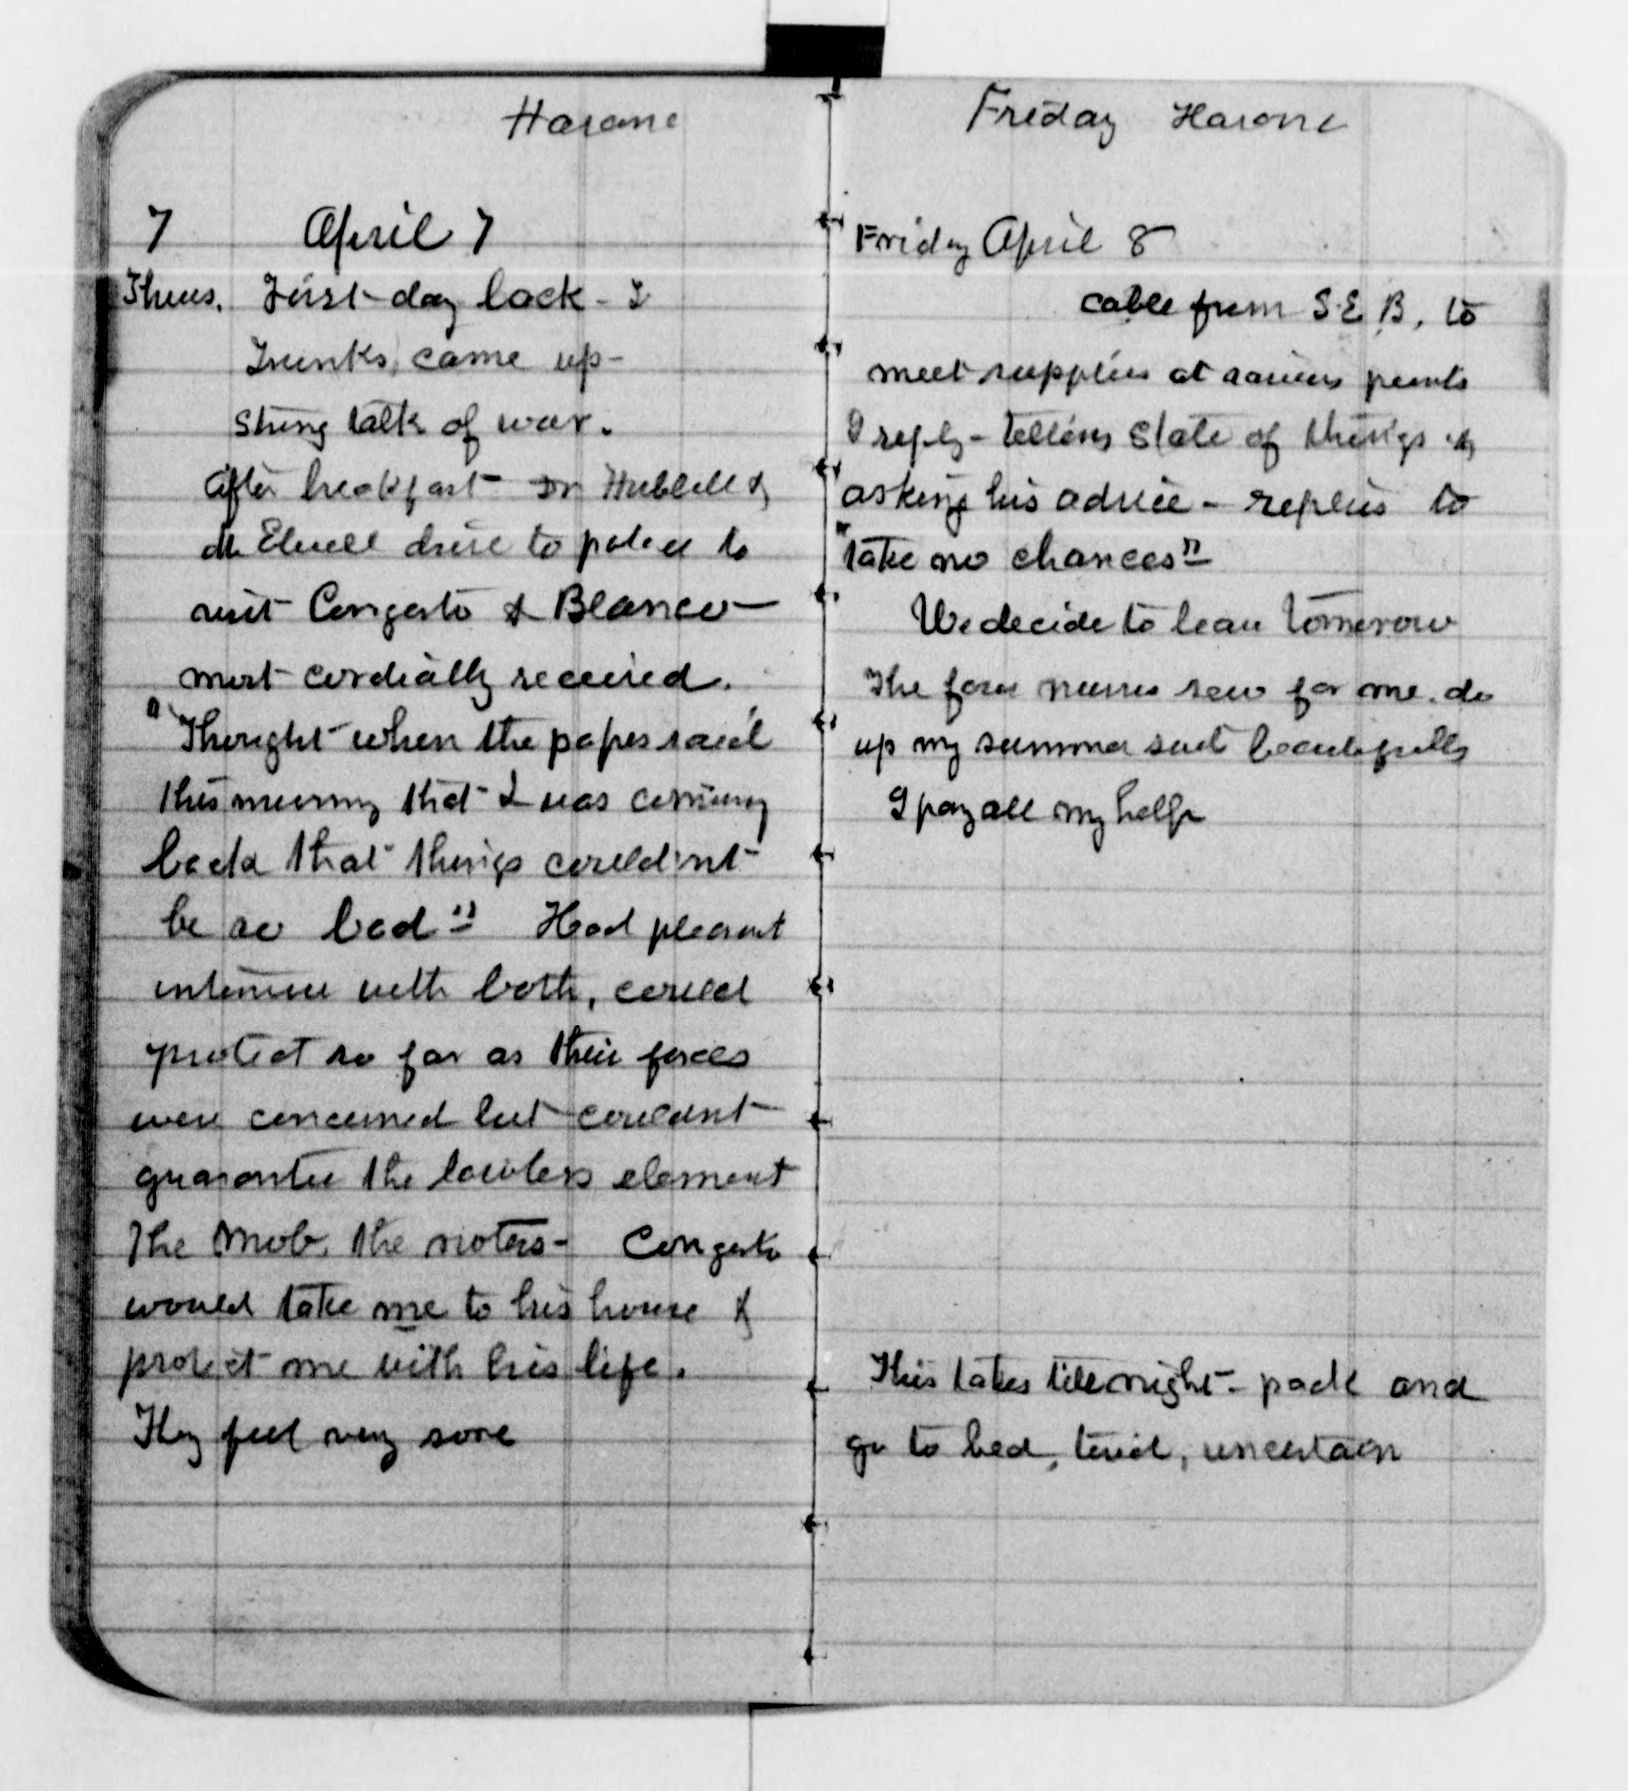 Havana
7 April 7
Thurs. First day back - 2
Trunks, came up -
Strong talk of war.
After breakfast Dr Hubbell &
Mr Elwell drive to palace to
visit Congosto & Blanco -
most cordially received.
"Thought when the papers said
this morning that I was coming
back that things couldn't
be so bad" Had pleasant
interview with both, could
protect so far as their forces
were concerned but couldnt
guarantee the lawless element
The Mob, the rioters - Congosto
would take me to his house &
protect me with his life.
They feel very sore
Friday Havana
Friday April 8
cable from S.E.B. to
meet supplies at various points
I reply - telling state of things &
asking his advice - replies to
"take no chances"
We decide to leave tomorrow
The four nurses sew for me. do
up my summer suit beautifully
I pay all my help
This takes till night - pack and
go to bed, tired, uncertain